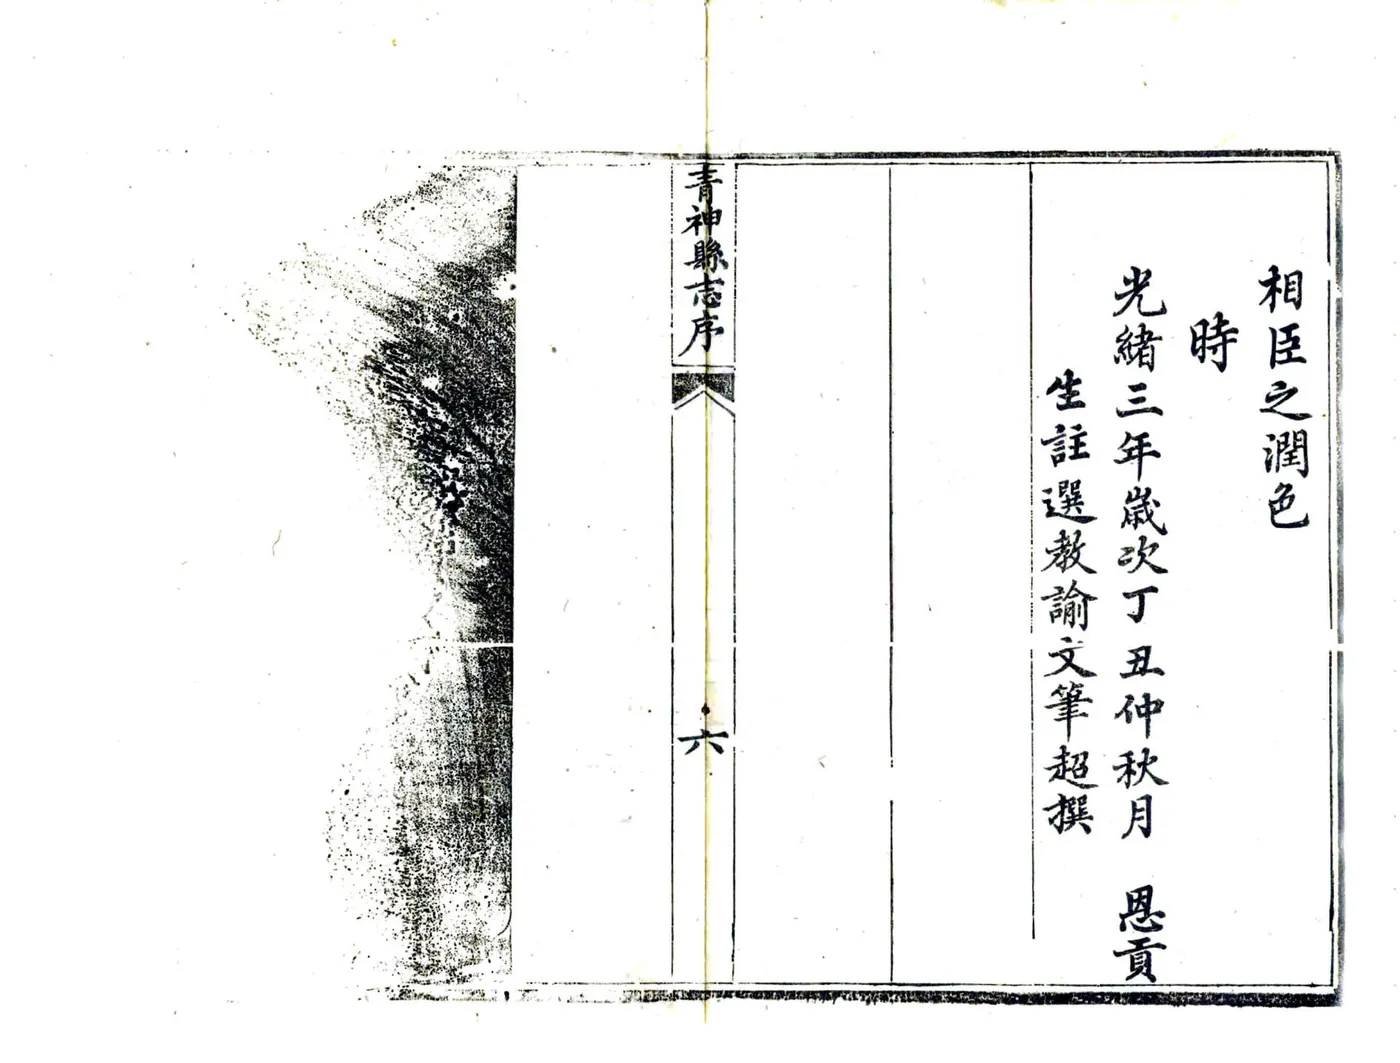 相臣之潤色
時
光緒三年歲次丁丑仲秋月 恩貢
生註選教諭文筆超撰
青神縣志序
六